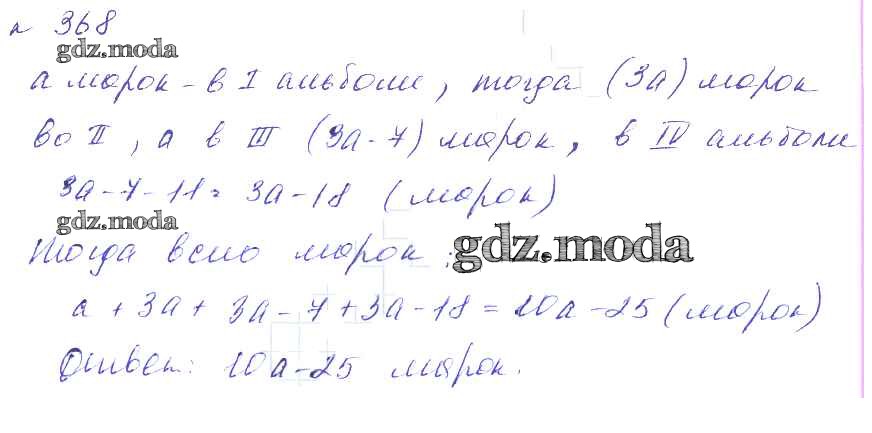 № 368
gdz.moda
а марок - в I альбоме, тогда (3а) марок
во II, а в III (3а-7) марок, в IV альбоме
3а-7-11= 3а-18 (марок)
gdz.moda
Тогда всего марок :
gdz.moda
а + 3а + 3а - 7 + 3а - 18 = 10а - 25 (марок)
Ответ: 10а-25 марок.